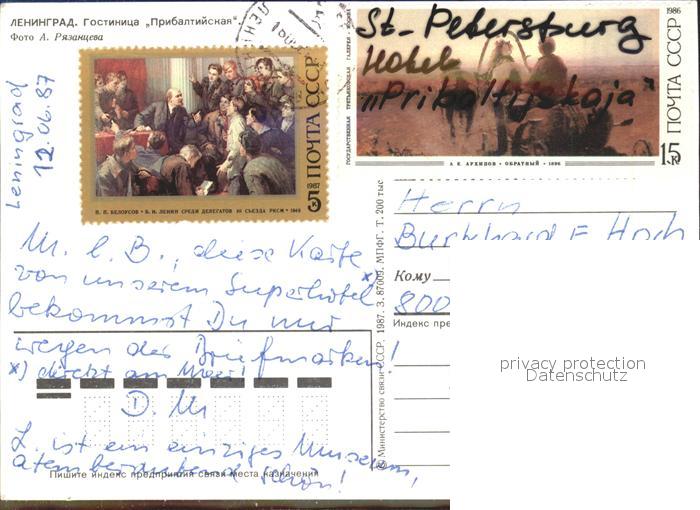 ЛЕНИНГРАД. Гостиница „Прибалтийская“
Фото А. Рязанцева
Leningrad
12.06.87
ПОЧТА СССР
1987
5к
П. П. БЕЛОУСОВ • В. И. ЛЕНИН СРЕДИ ДЕЛЕГАТОВ III СЪЕЗДА РКСМ • 1949
St. Petersburg
Hotel
„Pribaltijskaja“
ГОСУДАРСТВЕННАЯ ТРЕТЬЯКОВСКАЯ ГАЛЕРЕЯ • МОСКВА
1986
ПОЧТА СССР
15к
А. Е. АРХИПОВ • ОБРАТНЫЙ • 1896
M. l. B., diese Karte
von unserem Superhotel x)
bekommst Du nur
wegen der Briefmarken!
x) direkt am Meer!
D. M
L. ist ein einziges Museum,
atemberaubend schön!
Пишите индекс предприятия связи места назначения
© Министерство связи СССР. 1987. З. 87009. МПФГ. Т. 200 тыс
Herrn
Burkhard F Hoch
Кому
800
Индекс пре
privacy protection
Datenschutz